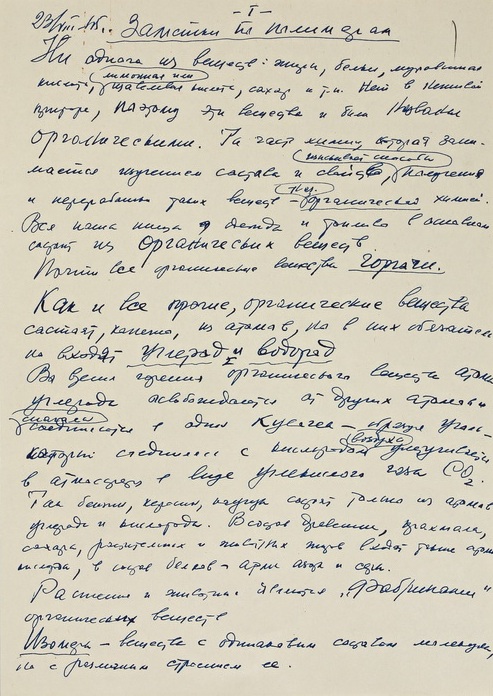 – I –
23/VIII Заметки по полимерам
Ни одного из веществ: жиры, белки, муравьиная
лимонная или
кислота, щавелевая кислота, сахар и т.п. нет в неживой
природе, поэтому эти вещества и были названы
органическими. Та часть химии, которая зани-
мается изучением состава и свойств, получения
и переработки таких веществ – органической химией.
Вся наша пища, одежда и топливо в основном
состоят из органических веществ.
Почти все органические вещества горючи.
Как и все прочие, органические вещества
состоят, конечно, из атомов, но в них обязатель
но входят углерод и водород
Во время горения органического вещества атомы
углерода освобождаются от других атомов и
сначала
соединяются в один кусочек – образуя уголь –
воздуха
который соединился с кислородом улетучивается
в атмосферу в виде углекислого газа CO₂.
Так бензин, керосин, состоят только из атомов
углерода и кислорода. В состав древесины, крахмала,
сахара, растительных и животных жиров входят также атомы
кислорода, в состав белков – азота и серы.
Растения и животные являются „Фабриками"
органических веществ
Изомеры – вещества с одинаковым составом молекулы,
но с различным строением ее.